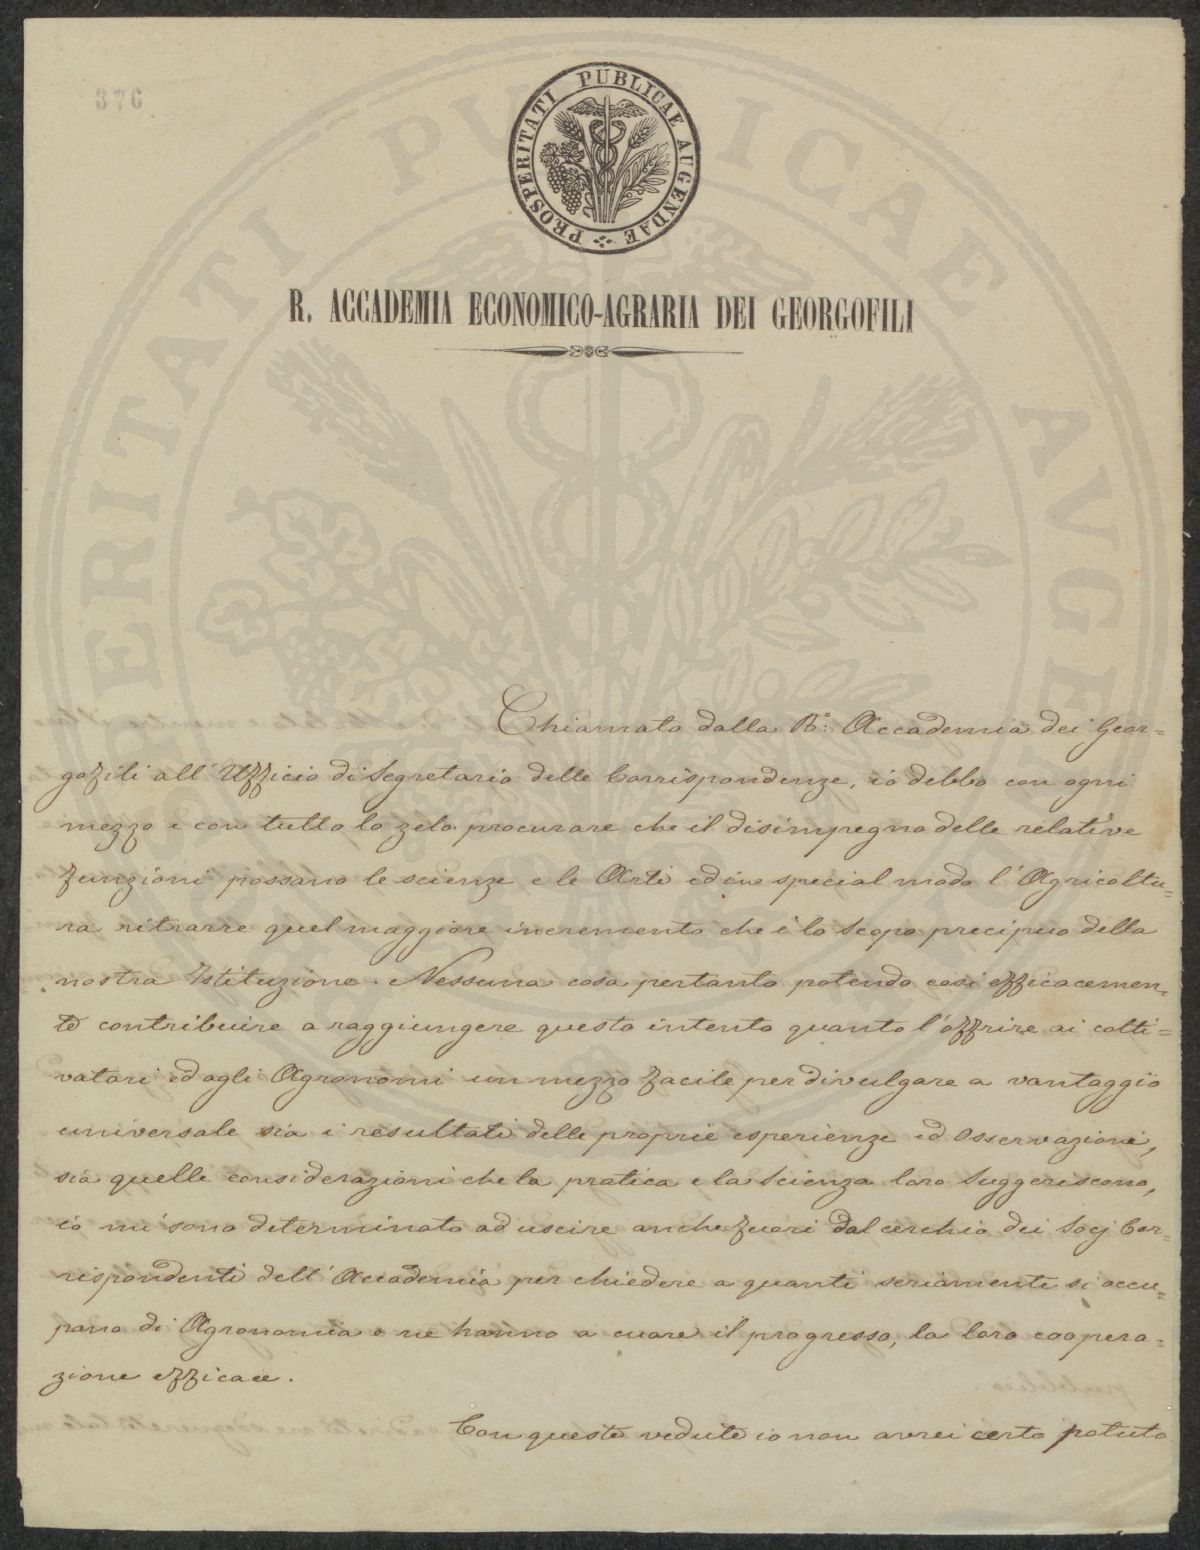 376
PROSPERITATI PUBLICAE AUGENDAE
R. ACCADEMIA ECONOMICO-AGRARIA DEI GEORGOFILI
Chiamato dalla R.ª Accademia dei Geor=
gofili all' Uffizio di Segretario delle Corrispondenze, io debbo con ogni
mezzo e con tutto lo zelo procurare che il disimpegno delle relative
funzioni possano le scienze e le Arti ed in special modo l'Agricoltu=
ra ritrarre quel maggiore incremento che è lo Scopo precipuo della
nostra Istituzione. Nessuna cosa pertanto potendo così efficacemen=
te contribuire a raggiungere questo intento quanto l'offrire ai colti=
vatori ed agli Agronomi un mezzo facile per divulgare a vantaggio
universale sia i resultati delle proprie esperienze ed Osservazioni,
sia quelle considerazioni che la pratica e la Scienza loro Suggeriscono,
io mi sono determinato ad uscire anche fuori dal cerchio dei Socj Cor=
rispondenti dell' Accademia per chiedere a quanti seriamente si occu=
pano di Agronomia o ne hanno a cuore il progresso, la loro coopera=
zione efficace.
Con queste vedute io non avrei certo potuto